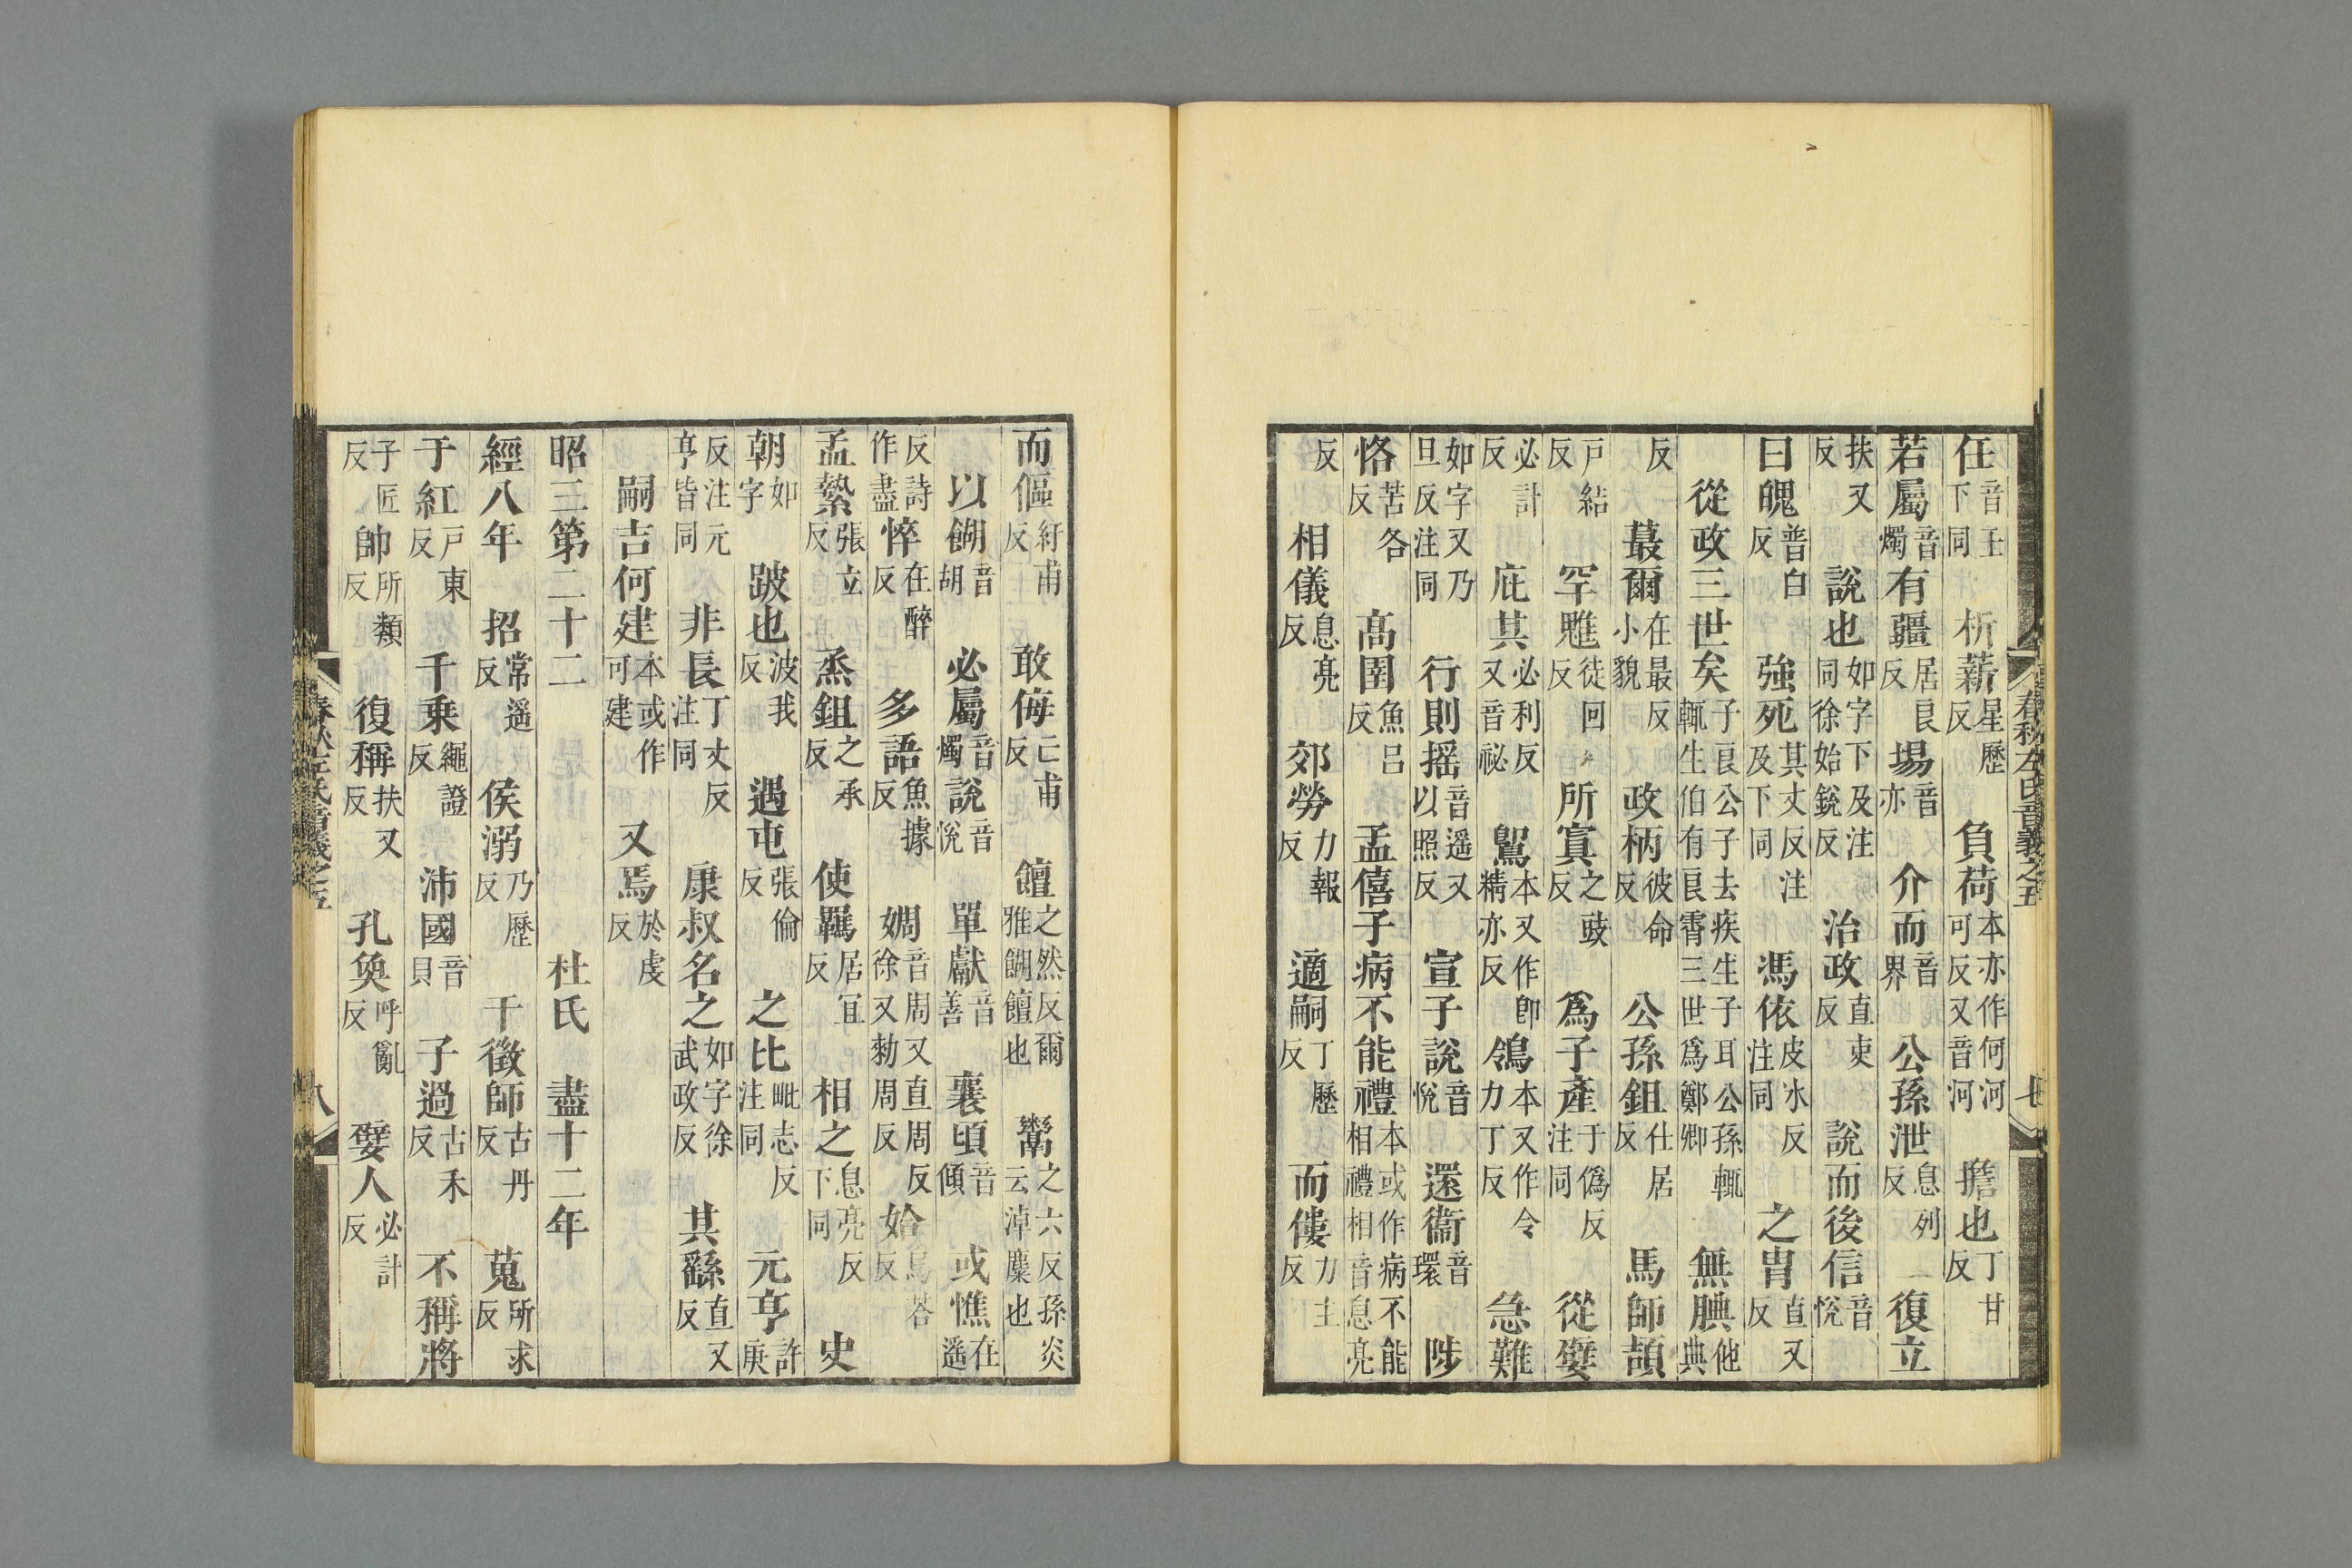 任音壬下同 析薪星歷反 負荷本亦作何河可反又音河 擔也丁甘反
若屬音燭 有疆居良反 場音亦 介而音界 公孫泄息列反 復立
扶又反 說也如字下及注同徐始銳反 治政直吏反 說而後信音悅
曰魄普白反 強死其丈反注及下同 馮依皮冰反注同 之胄直又反
從政三世矣子良公子去疾生子耳公孫輒輒生伯有良霄三世爲鄭卿 無腆他典
反 蕞爾在最反小貌 政柄彼命反 公孫鉏仕居反 馬師頡
戶結反 罕魋徒回反 所寘之豉反 爲子產于僞反注同 從嬖
必計反 庇其必利反又音祕 鴽本又作卽精亦反 鴒本又作令力丁反 急難
如字又乃旦反注同 行則搖音遥又以照反 宣子說音悅 還衞音環 陟
恪苦各反 高圉魚呂反 孟僖子病不能禮本或作病不能相禮相音息亮
反 相儀息亮反 郊勞力報反 適嗣丁歷反 而僂力主反
春秋左氏音義之五 七
而傴紆甫反 敢侮亡甫反 饘之然反爾雅餬饘也 鬻之六反孫炎云淖麋也
以餬音胡 必屬音燭 說音悅 單獻音善 襄頃音傾 或憔在遥
反詩作盡 悴在醉反 多語魚據反 婤音周又直周反徐又勑周反 姶烏荅反
孟縶張立反 烝鉏之承反 使羈居宜反 相之息亮反下同 史
朝如字 跛也波我反 遇屯張倫反 之比毗志反注同 元亨許庚
反注元亨皆同 非長丁丈反注同 康叔名之如字徐武政反 其繇直又反
嗣吉何建本或作可建 又焉於虔反
昭三第二十二 杜氏 盡十二年
經八年 招常遥反 侯溺乃歷反 干徵師古丹反 蒐所求反
于紅戶東反 千乘繩證反 沛國音貝 子過古禾反 不稱將
子匠反 帥所類反 復稱扶又反 孔奐呼亂反 嬖人必計反
春秋左氏音義之五 八